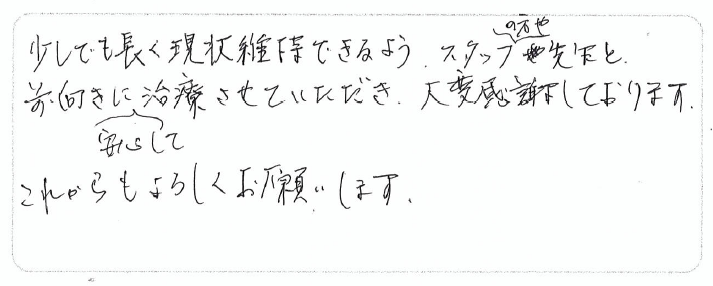 の方や
少しでも長く現状維持できるよう、スタッフ先生と
前向きに治療させていただき、大変感謝しております。
安心して
これからもよろしくお願いします。